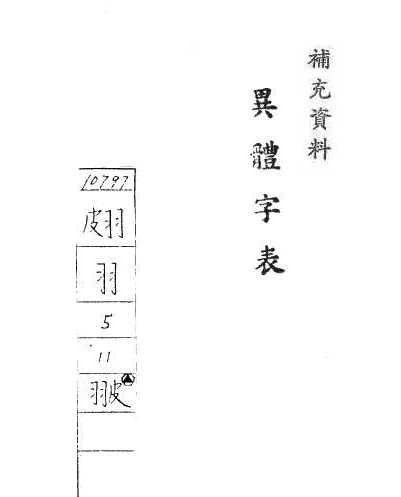 補充資料
異體字表
10797
翍
羽
5
11